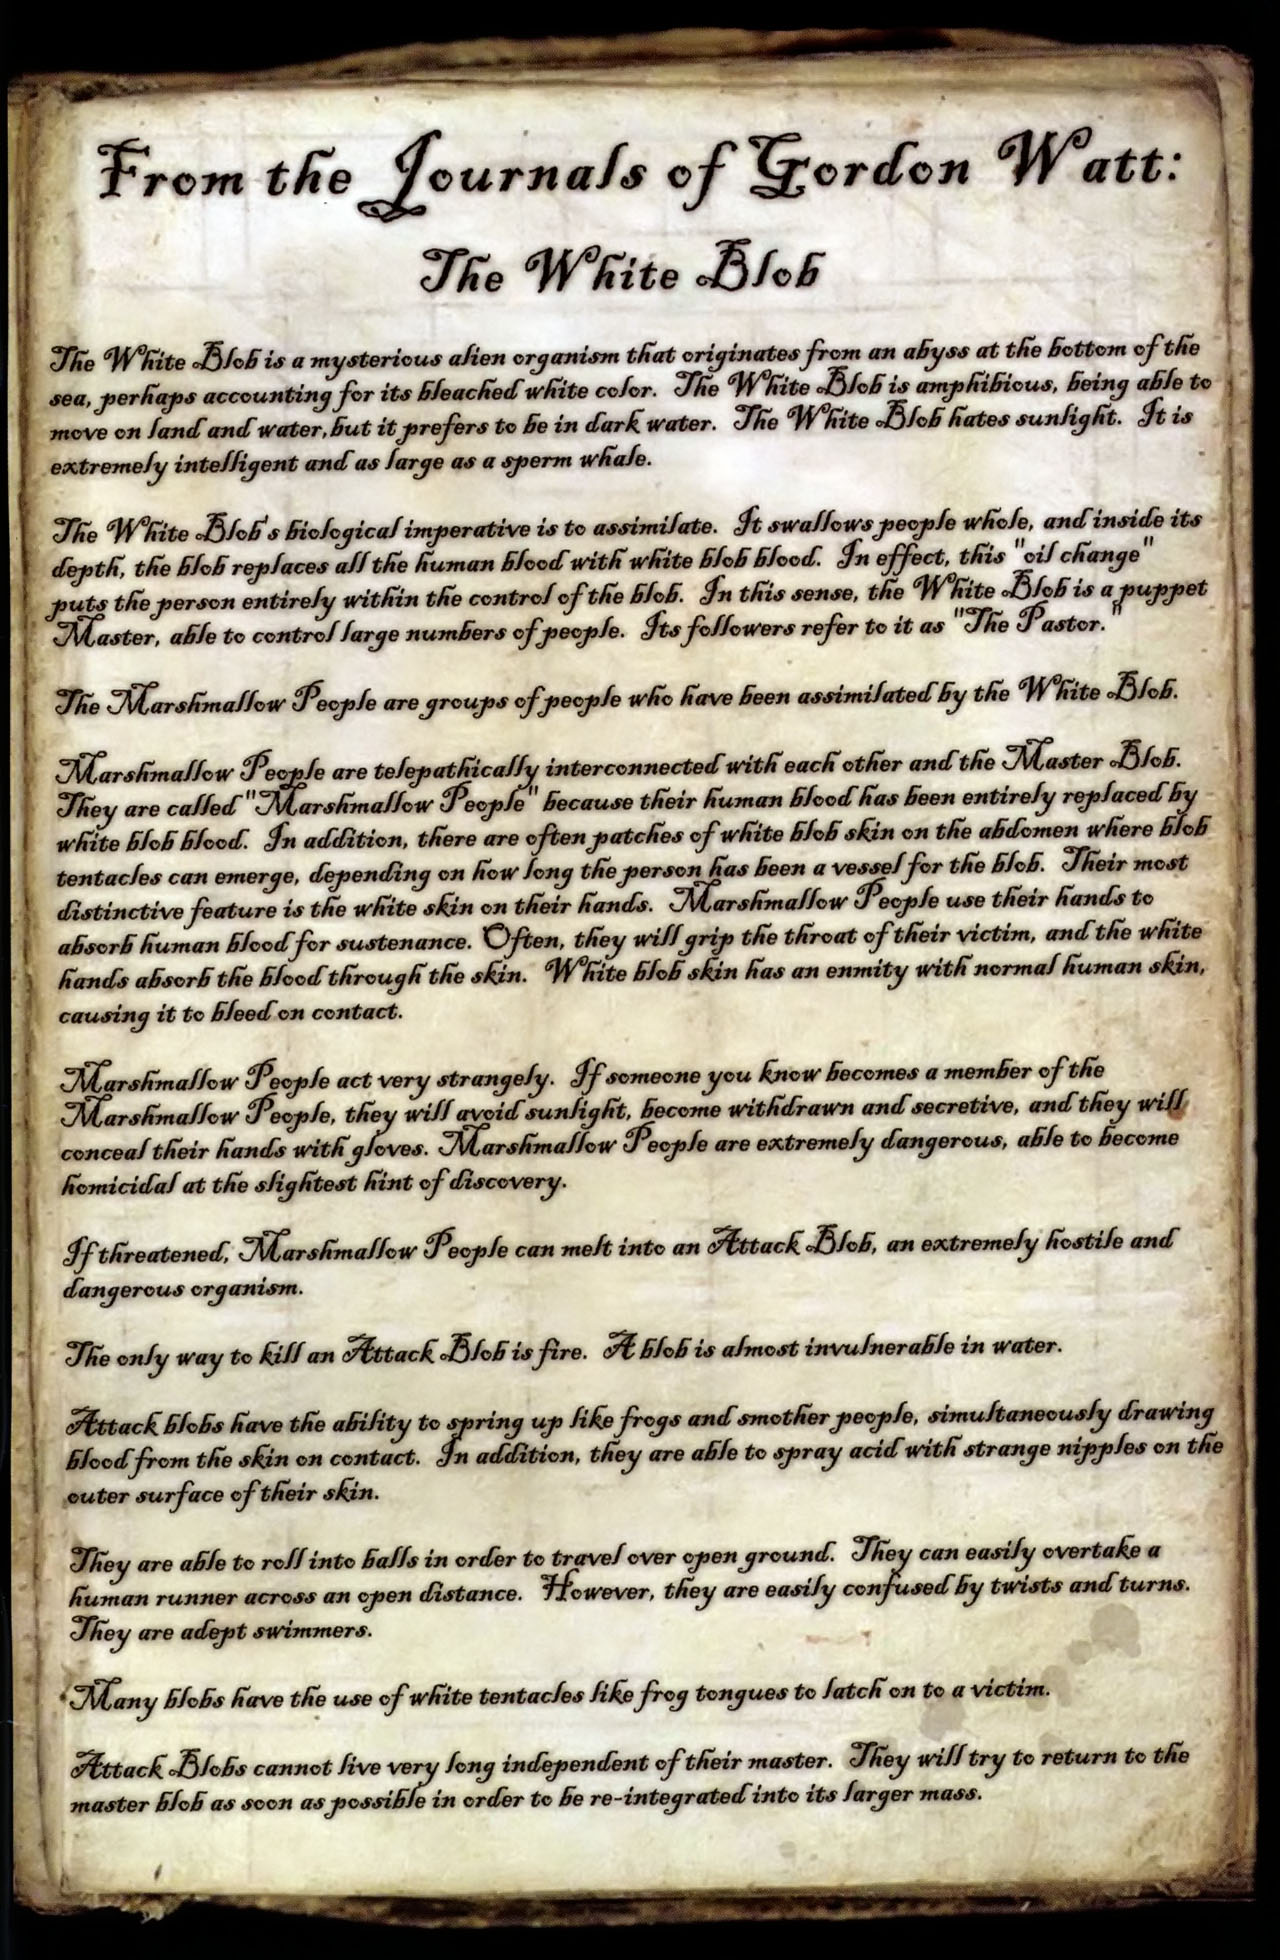 From the Journals of Gordon Watt:
The White Blob
The White Blob is a mysterious alien organism that originates from an abyss at the bottom of the
sea, perhaps accounting for its bleached white color. The White Blob is amphibious, being able to
move on land and water, but it prefers to be in dark water. The White Blob hates sunlight. It is
extremely intelligent and as large as a sperm whale.
The White Blob's biological imperative is to assimilate. It swallows people whole, and inside its
depth, the blob replaces all the human blood with white blob blood. In effect, this "oil change"
puts the person entirely within the control of the blob. In this sense, the White Blob is a puppet
Master, able to control large numbers of people. Its followers refer to it as "The Pastor."
The Marshmallow People are groups of people who have been assimilated by the White Blob.
Marshmallow People are telepathically interconnected with each other and the Master Blob.
They are called "Marshmallow People" because their human blood has been entirely replaced by
white blob blood. In addition, there are often patches of white blob skin on the abdomen where blob
tentacles can emerge, depending on how long the person has been a vessel for the blob. Their most
distinctive feature is the white skin on their hands. Marshmallow People use their hands to
absorb human blood for sustenance. Often, they will grip the throat of their victim, and the white
hands absorb the blood through the skin. White blob skin has an enmity with normal human skin,
causing it to bleed on contact.
Marshmallow People act very strangely. If someone you know becomes a member of the
Marshmallow People, they will avoid sunlight, become withdrawn and secretive, and they will
conceal their hands with gloves. Marshmallow People are extremely dangerous, able to become
homicidal at the slightest hint of discovery.
If threatened, Marshmallow People can melt into an Attack Blob, an extremely hostile and
dangerous organism.
The only way to kill an Attack Blob is fire. A blob is almost invulnerable in water.
Attack blobs have the ability to spring up like frogs and smother people, simultaneously drawing
blood from the skin on contact. In addition, they are able to spray acid with strange nipples on the
outer surface of their skin.
They are able to roll into balls in order to travel over open ground. They can easily overtake a
human runner across an open distance. However, they are easily confused by twists and turns.
They are adept swimmers.
Many blobs have the use of white tentacles like frog tongues to latch on to a victim.
Attack Blobs cannot live very long independent of their master. They will try to return to the
master blob as soon as possible in order to be re-integrated into its larger mass.